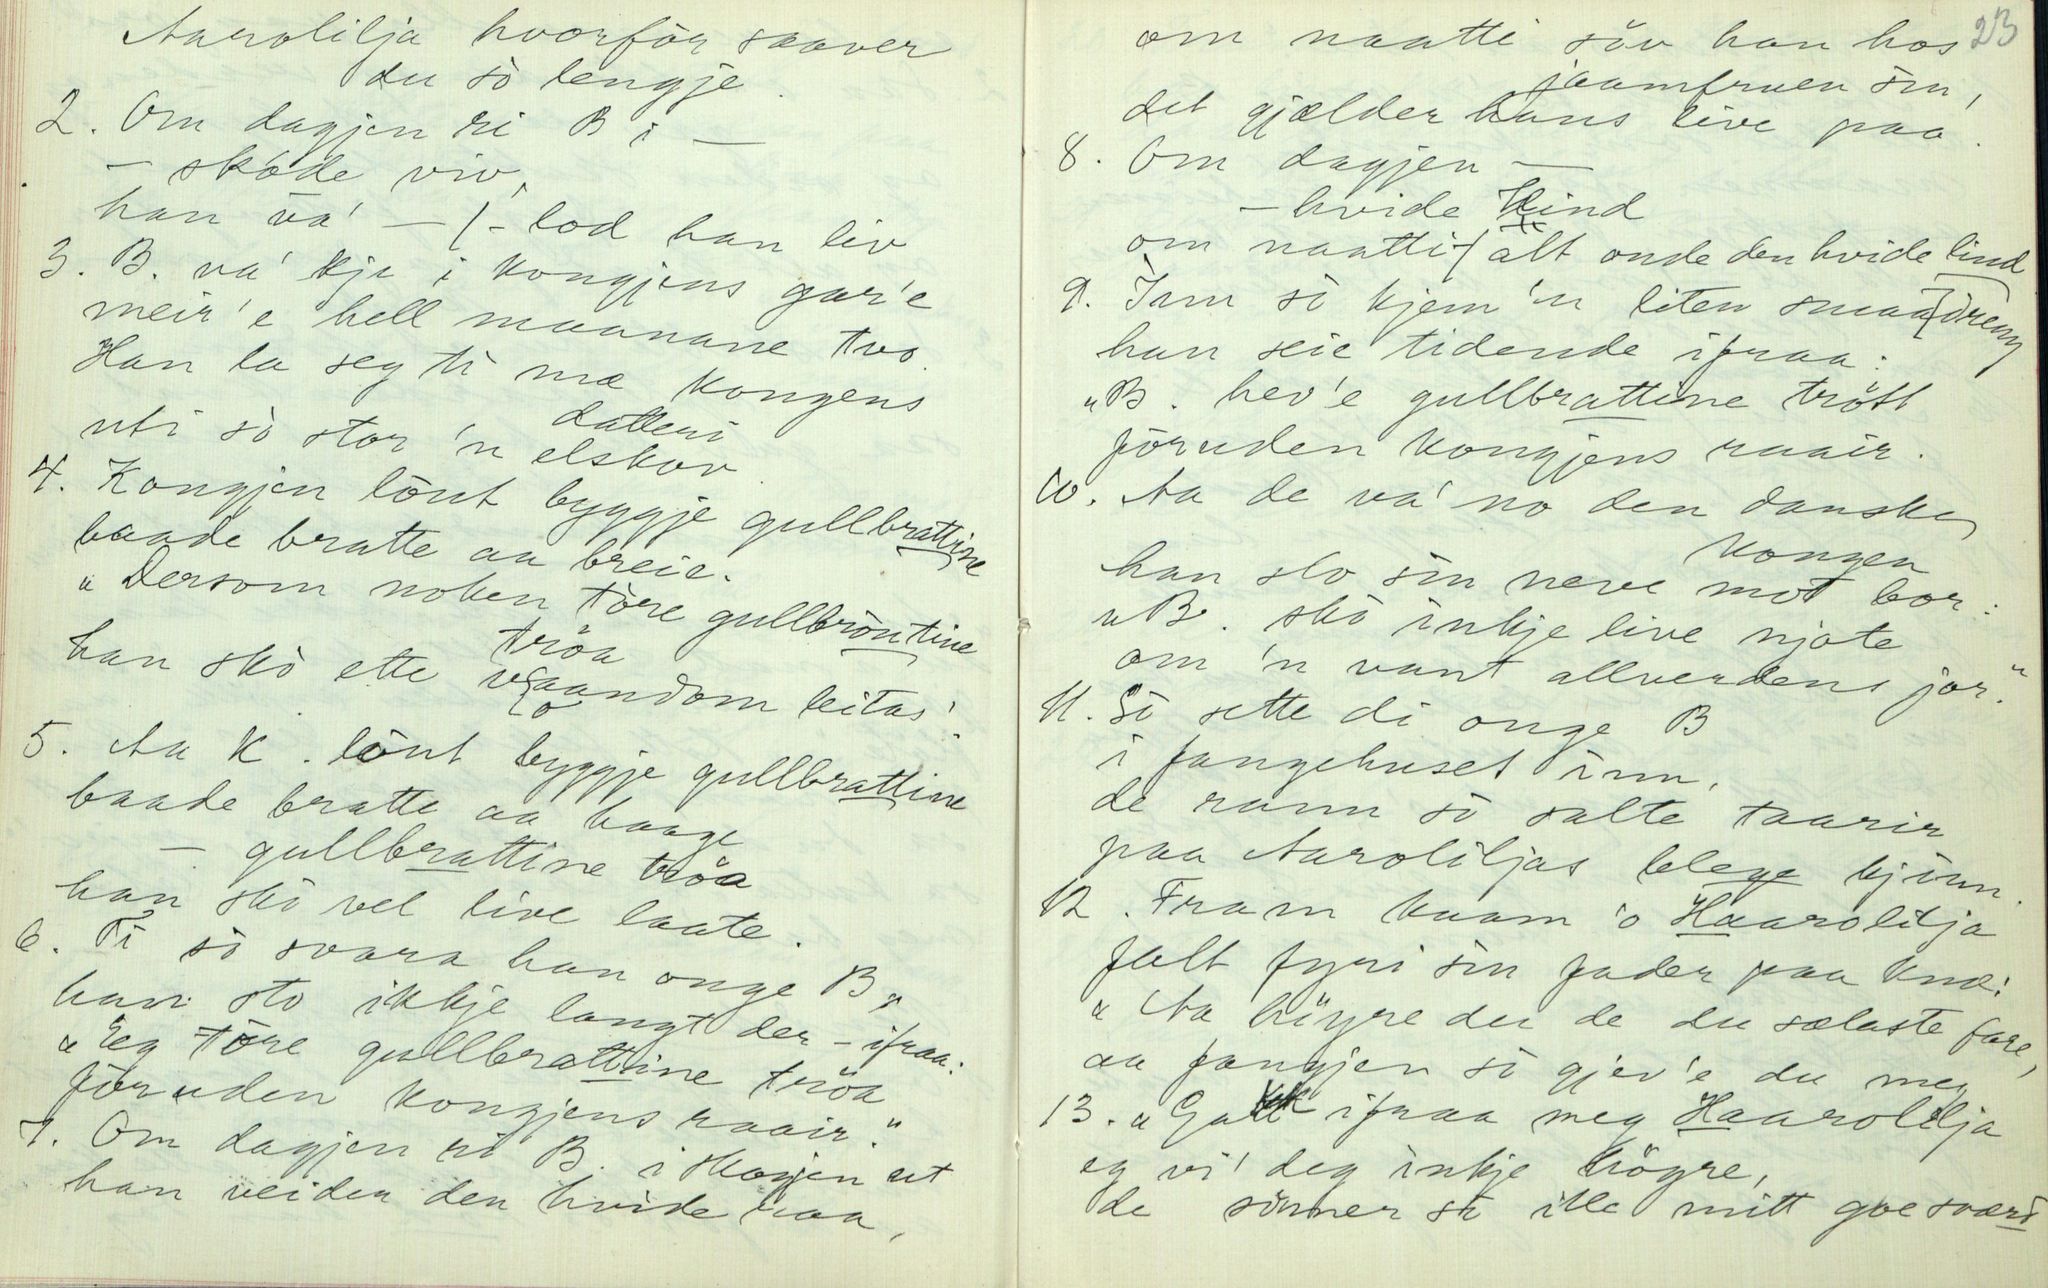 Aarolilja hvorför saaver
du sò lengje.
2. Om dagjen ri B i —
— skóde viv,
han va' — / - lod han liv
3. B. va' kje i kongjens gar'e
meir 'e hell maanane tvo.
Han la seg ti mæ kongens
datteri
uti sò stor 'n elskov
4. Kongjen lönt byggje gullbrattine
baade bratte aa breie.
"Dersom noken töre gullbröntine
tröa
han skò ette vaandom leitas'
o
5. Aa K. lönt byggje gullbrattine
baade bratte aa haage
— gullbrattine tröa
han skò vel live laate.
6. Ti sò svara han onge B,
han sto ikkje langt der-ifraa:
"Eg töre gullbrattine tröa
föruden kongjens raair."
7. Om dagjen ri B. i skogjen ut
han veider den hvide raa,
23
om naatti söv han hos
jaamfruen sin,
det gjælder hans live paa.
8. Om dagjen —
— hvide Hind
om naatti-/ alt onde den hvide lind
9. Inn sò kjem 'n liten smaadreng
han seie tidende ifraa:
"B. hev'e gullbrattine trött
föruden kongjens raair.
10. Aa de va' no den danske
kongen
han slo sin neve mot bor:
"B. skò inkje live njote
om 'n vant allverdens jor."
11. Sò sette di onge B
i fangehuset inn,
de rann sò salte taarir
paa Aaroliljas blege kjinn.
12. Fram kaam 'o Haarolilja
falt fyri sin fader paa knæ:
"Aa höyre du de du sælaste fare,
aa fangjen sò gjev'e du meg
13. "Gakk ifraa meg Haarolilja
eg vi' deg inkje högre,
de sömer sò ille mitt goe sværd